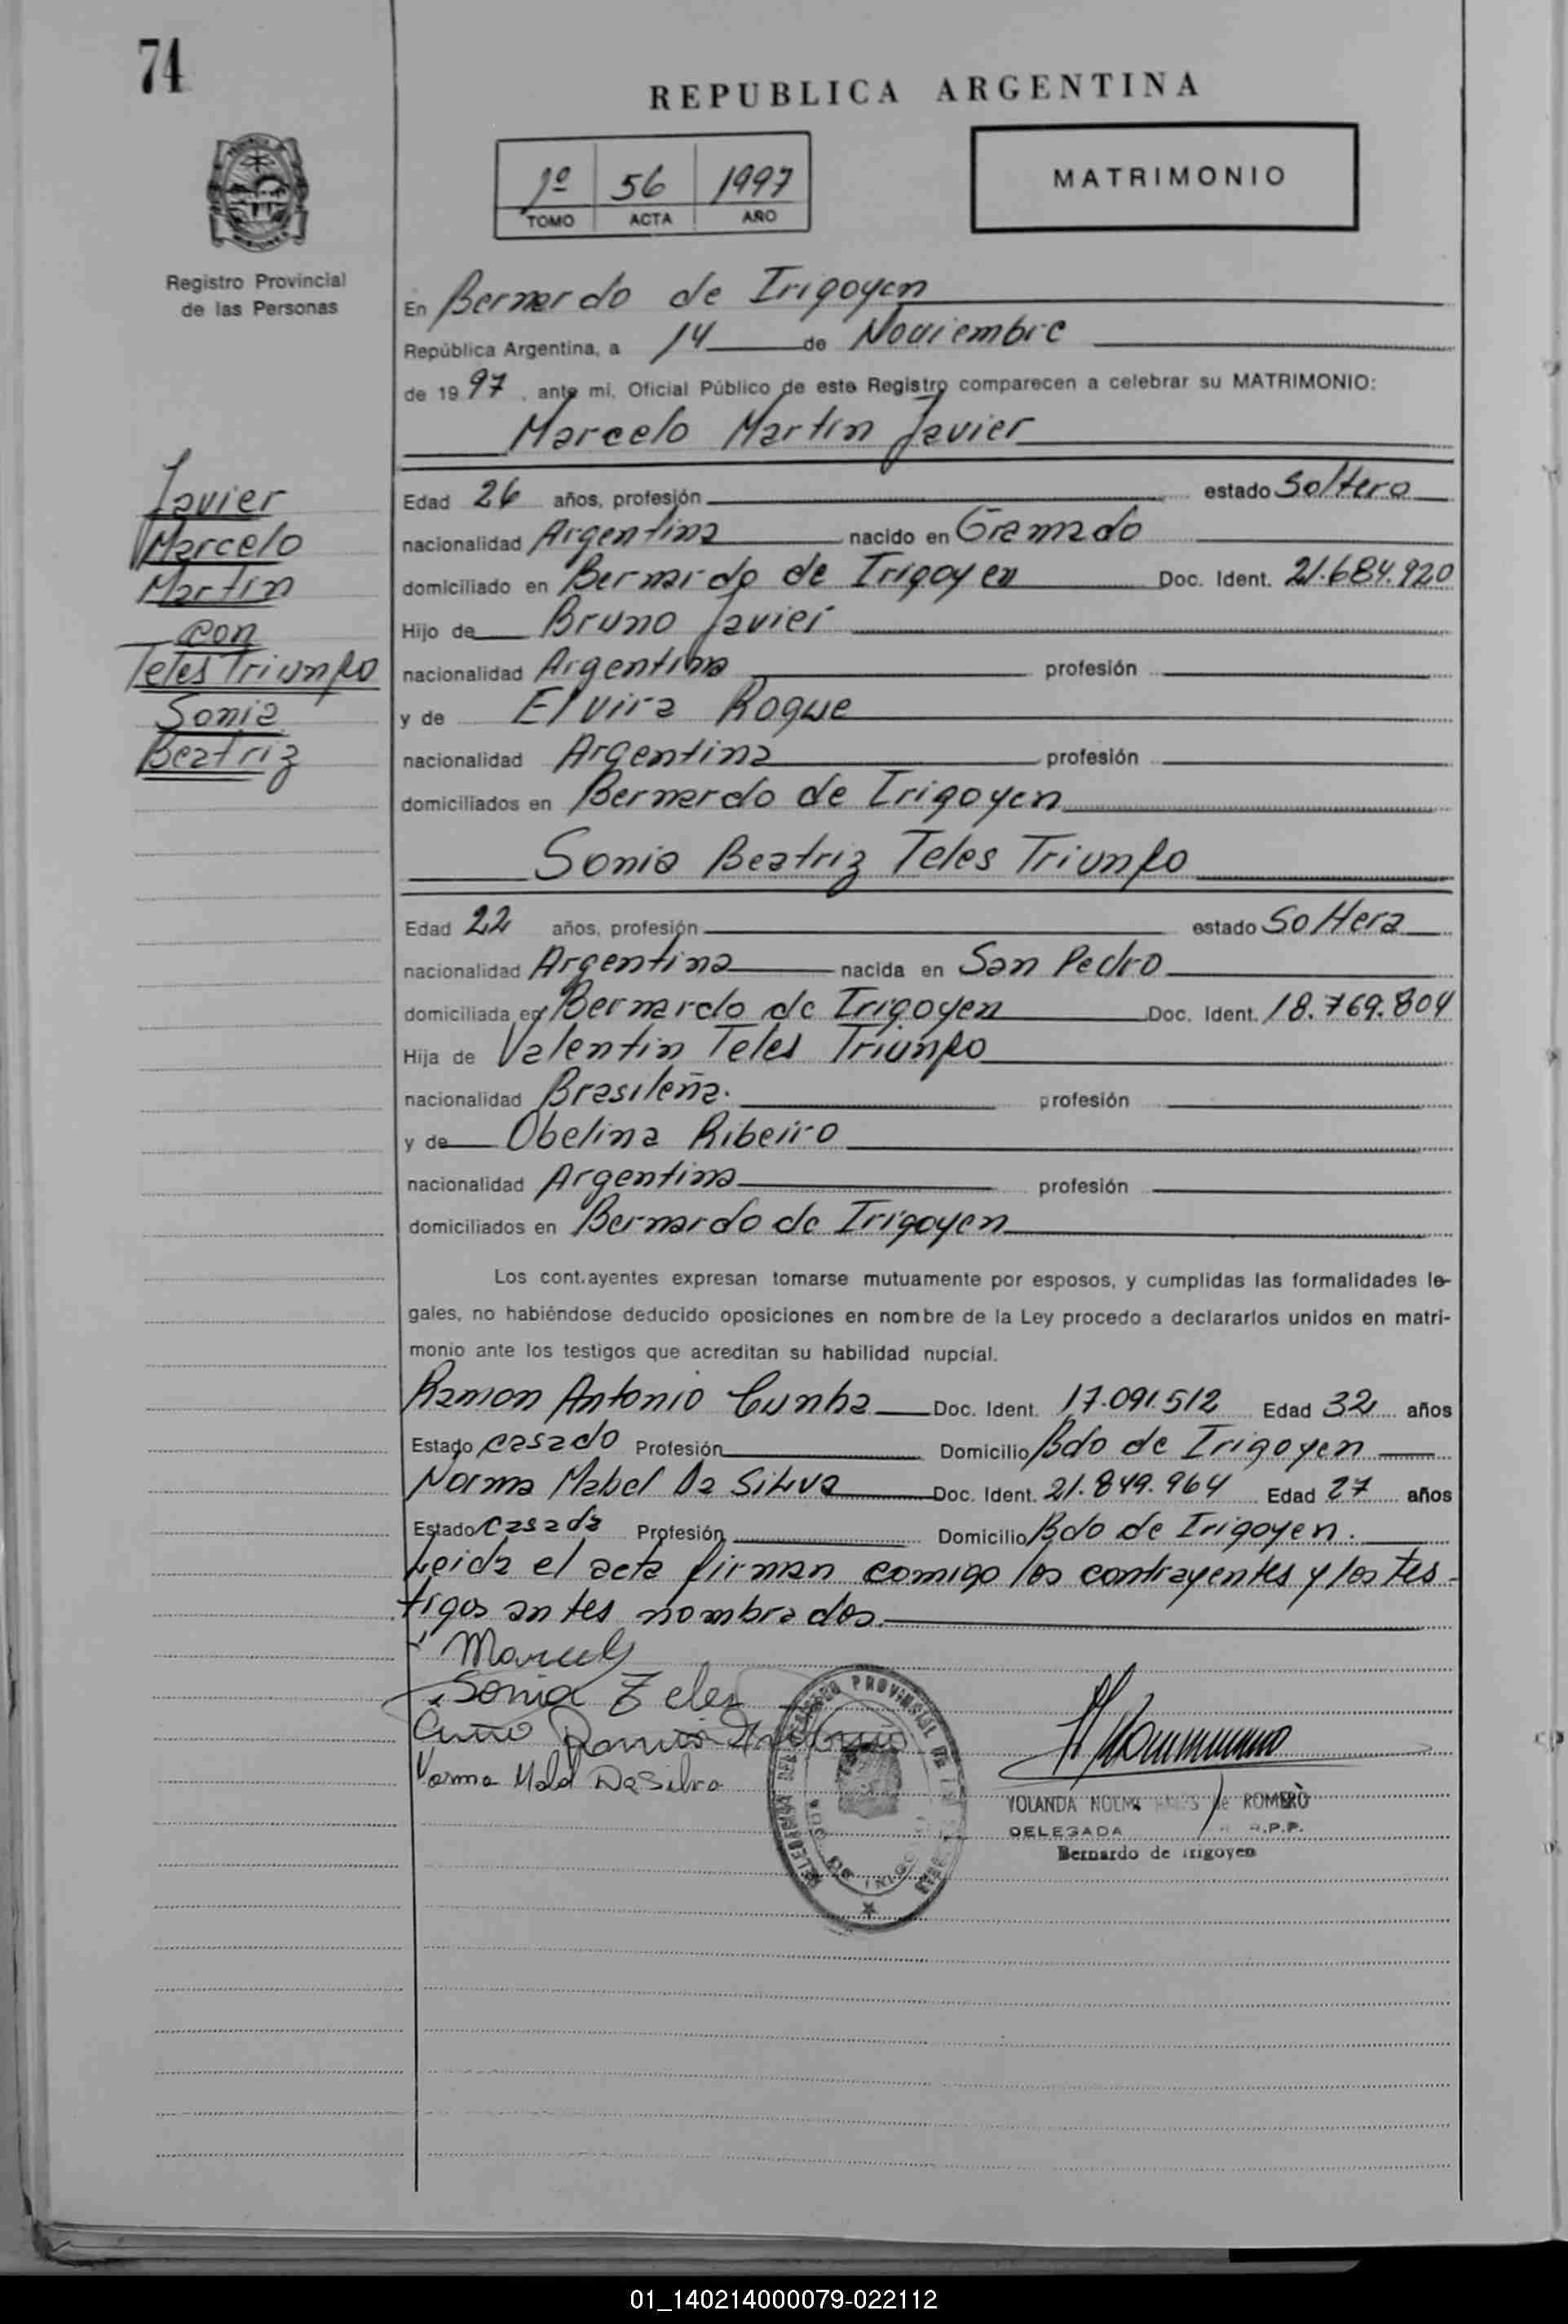 74
REPUBLICA ARGENTINA
1º 56 1997
TOMO ACTA AÑO
MATRIMONIO
Registro Provincial
de las Personas
En Bernardo de Irigoyen
República Argentina, a 14 de Noviembre
de 1997, ante mi, Oficial Público de este Registro comparecen a celebrar su MATRIMONIO:
Marcelo Martin Javier
Javier
Marcelo
Martin
con
Teles Triunfo
Sonia
Beatriz
Edad 26 años, profesión estado Soltero
nacionalidad Argentina nacido en Gramado
domiciliado en Bernardo de Irigoyen Doc. Ident. 21.684.920
Hijo de Bruno Javier
nacionalidad Argentina profesión
y de Elvira Roque
nacionalidad Argentina profesión
domiciliados en Bernardo de Irigoyen
Sonia Beatriz Teles Triunfo
Edad 22 años, profesión estado Soltera
nacionalidad Argentina nacida en San Pedro
domiciliada en Bernardo de Irigoyen Doc. Ident. 18.769.804
Hija de Valentin Teles Triunfo
nacionalidad Brasileña. profesión
y de Obelina Ribeiro
nacionalidad Argentina profesión
domiciliados en Bernardo de Irigoyen
Los cont.ayentes expresan tomarse mutuamente por esposos, y cumplidas las formalidades le-
gales, no habiéndose deducido oposiciones en nombre de la Ley procedo a declararlos unidos en matri-
monio ante los testigos que acreditan su habilidad nupcial.
Ramon Antonio Cunha Doc. Ident. 17.091.512 Edad 32 años
Estado casado Profesión Domicilio Bdo de Irigoyen
Norma Mabel Da Silva Doc. Ident. 21.849.964 Edad 27 años
Estado casada Profesión Domicilio Bdo de Irigoyen.
Leida el acta firman comigo los contrayentes y los tes-
tigos antes nombrados.
Sonia Teles
Ramon Antonio
Norma DaSilva
YOLANDA de ROMERO
DELEGADA R.P.P.
Bernardo de Irigoyen
01_140214000079-022112